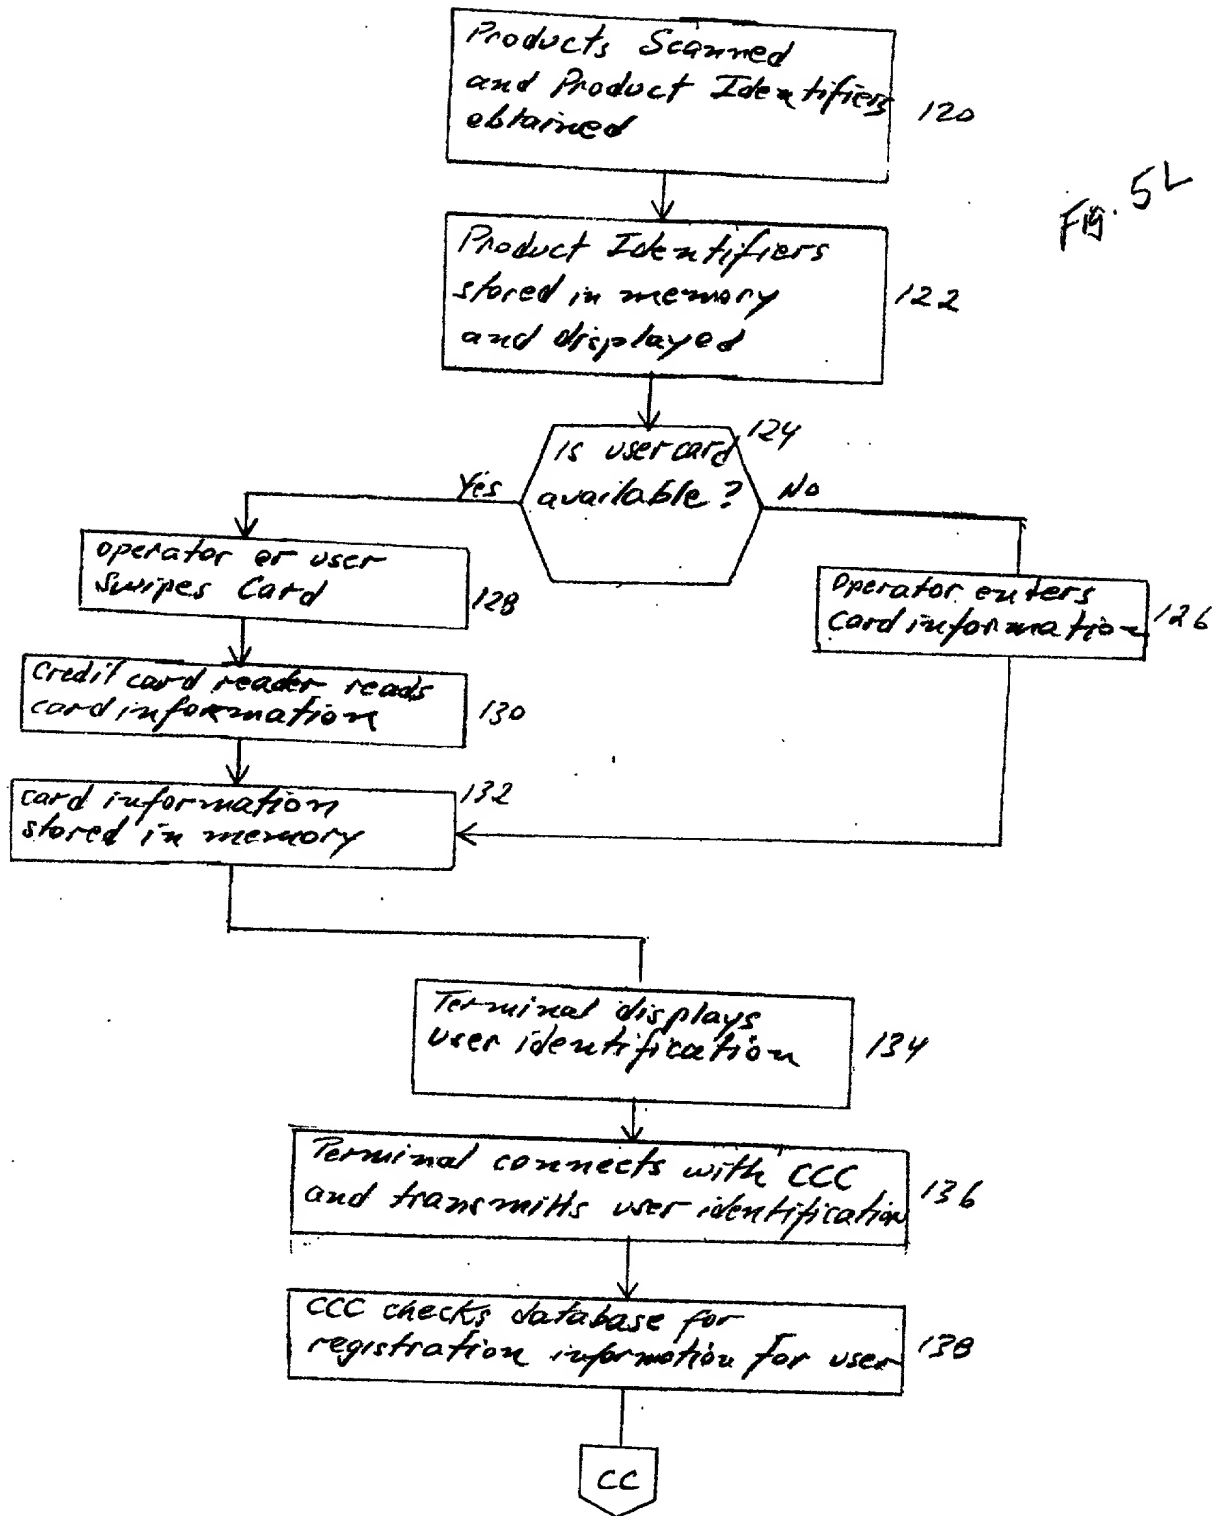 Products Scanned
and Product Identifiers
obtained
120
Fig. 5L
Product Identifiers
stored in memory
and displayed
122
Is user card
available?
124
Yes
No
operator or user
Swipes Card
128
Operator enters
card information
126
Credit card reader reads
card information
130
card information
stored in memory
132
Terminal displays
user identification
134
Terminal connects with CCC
and transmitts user identification
136
CCC checks database for
registration information for user
138
CC